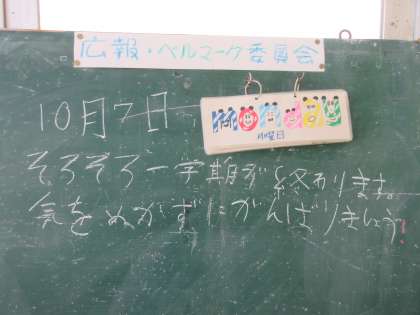 広報・ベルマーク委員会
10月7日
MONDAY
月曜日
そろそろ一学期が終わります。
気をぬかずにがんばりましょう!